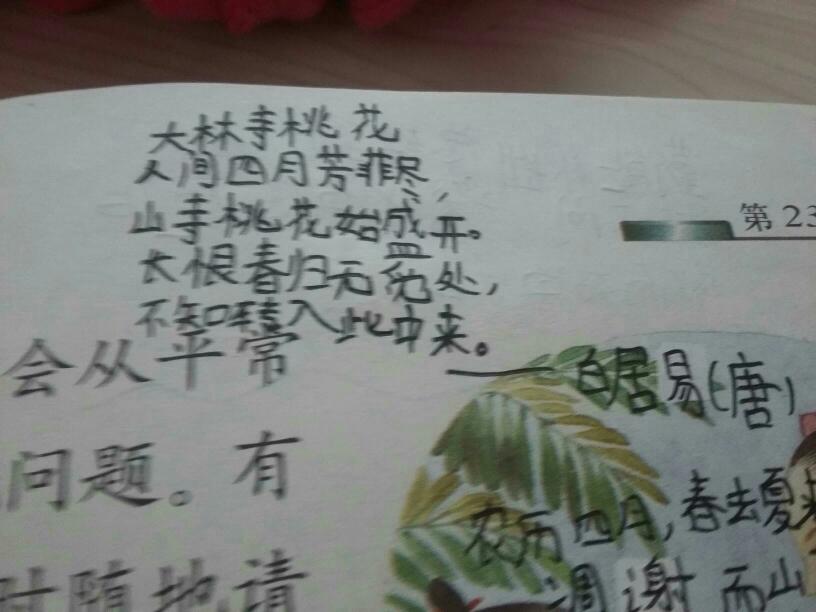 大林寺桃花
人间四月芳菲尽,
山寺桃花始盛开。
长恨春归无觅处,
不知转入此中来。
——白居易(唐)
第 23
会从平常
问题。有
时随地请
农历四月,春去夏来
凋谢 而山